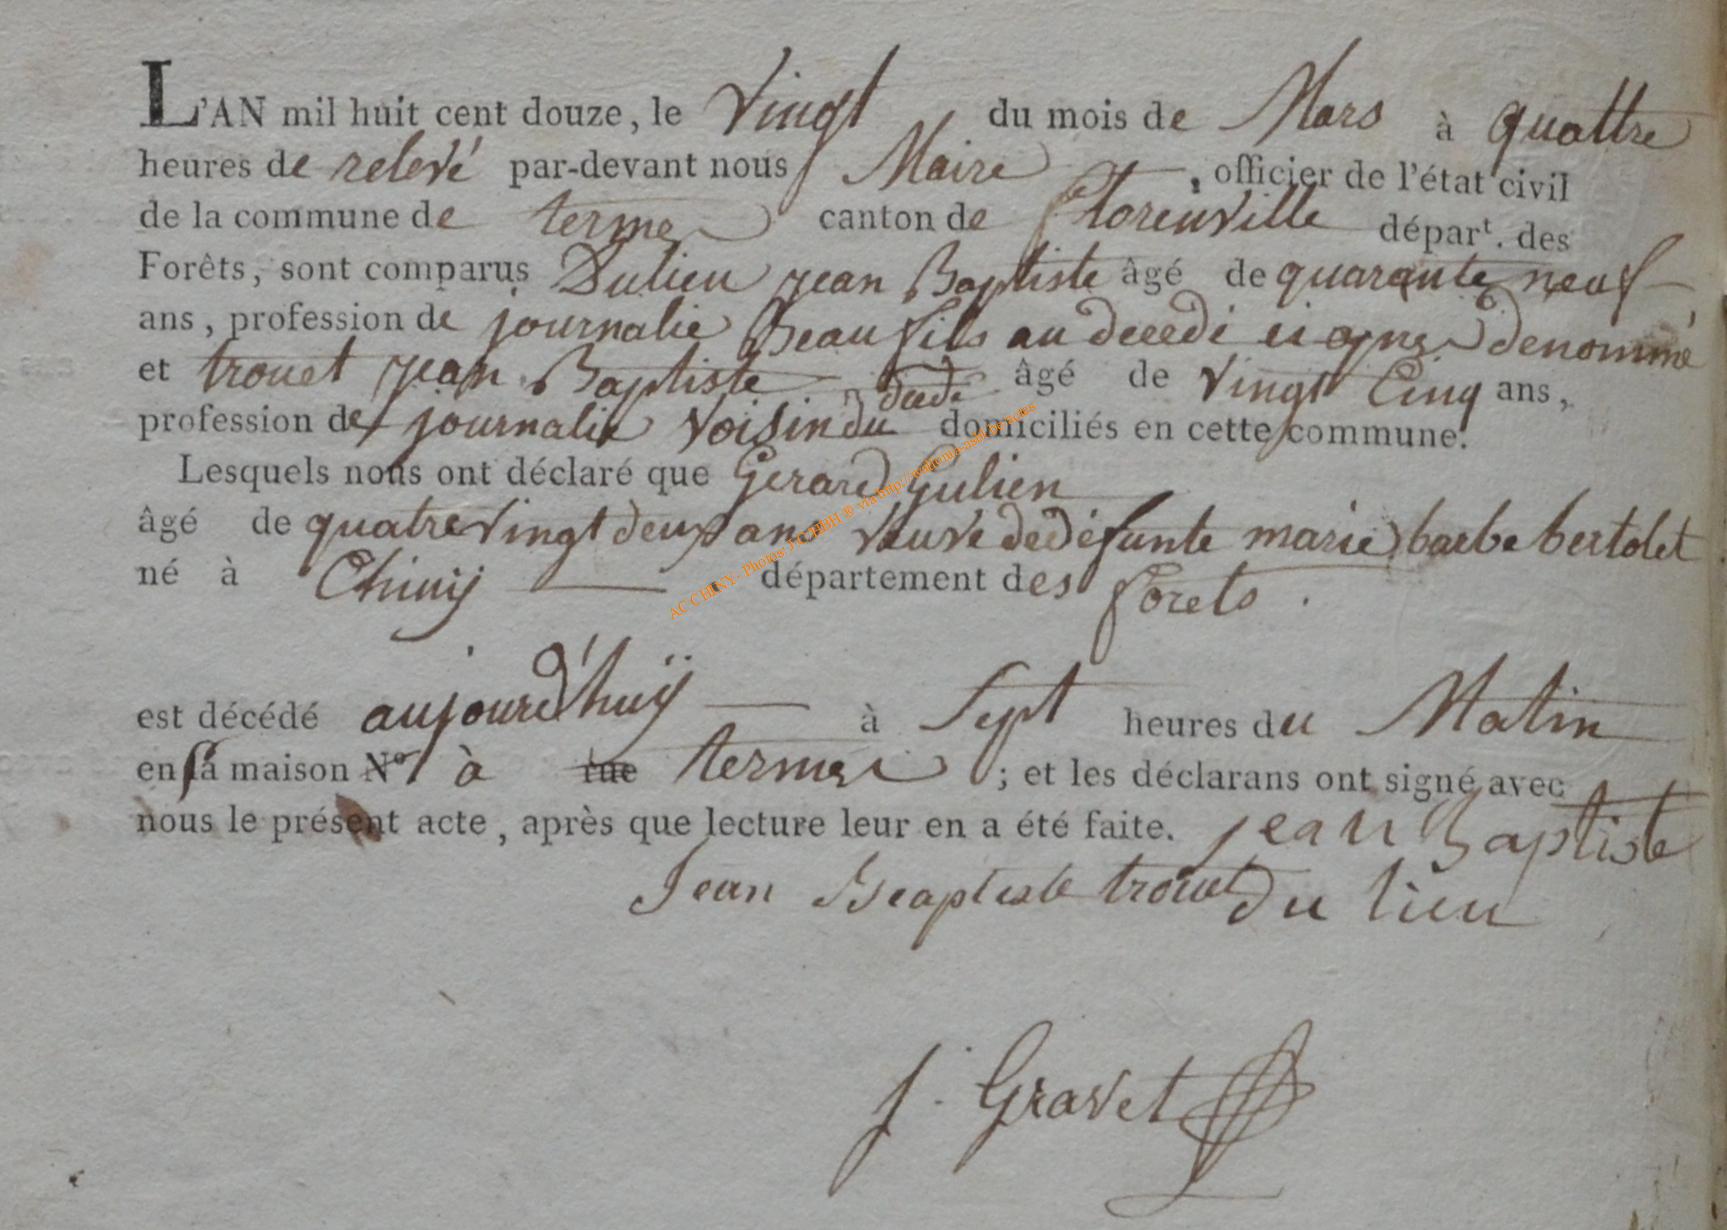 L'AN mil huit cent douze, le Vingt du mois de Mars à quattre
heures de relevé par-devant nous Maire , officier de l'état civil
de la commune de termes canton de florenville dépar^t. des
Forêts, sont comparus Dulieu jean Baptiste âgé de quarante neuf
ans, profession de journalie Beau fils au decedé ci apres denommé
et trouet jean Baptiste âgé de Vingt Cinq ans,
profession de journalie Voisin du decede domiciliés en cette commune.
Lesquels nous ont déclaré que Gerard Gulien
âgé de quatre Vingt deux ans Veuve de défunte marie barbe bertolet
né à Chiny département des forets.
est décédé aujourd'huÿ à Sept heures du Matin
en sa maison N° à rue termes ; et les déclarans ont signé avec
nous le présent acte, après que lecture leur en a été faite. jean Baptiste
Jean Beaptiste trouet du lieu
J. Gravet
AC CHINY - Photos